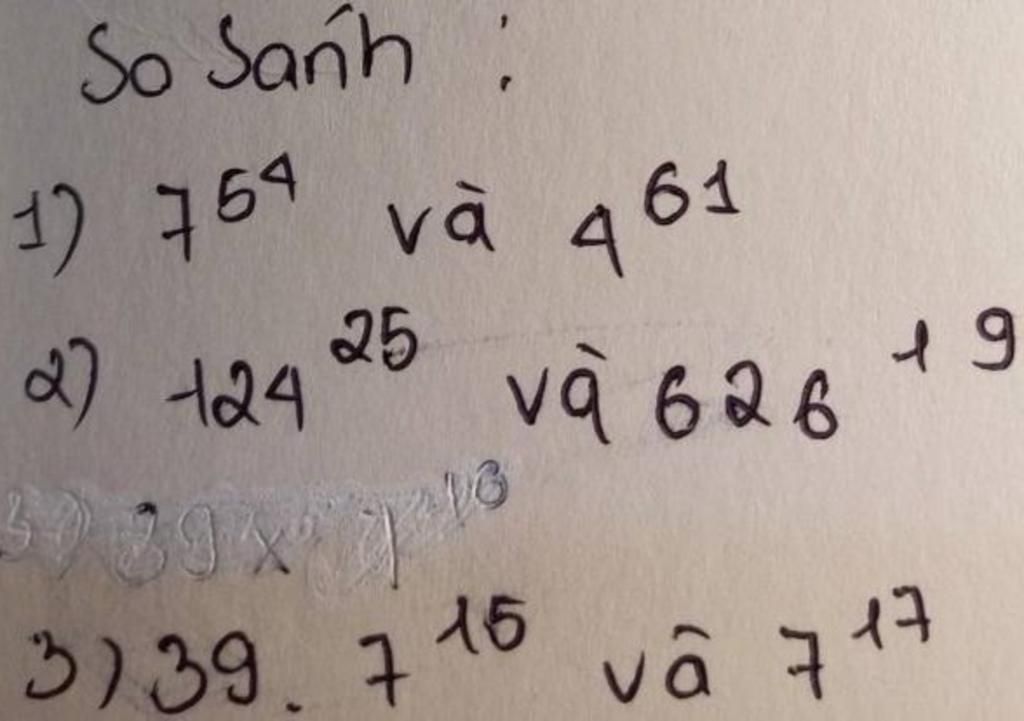 So Sánh :
1) 7^54 và 4^61
2) 124^25 và 626^19
3) 39. 7^15 và 7^17